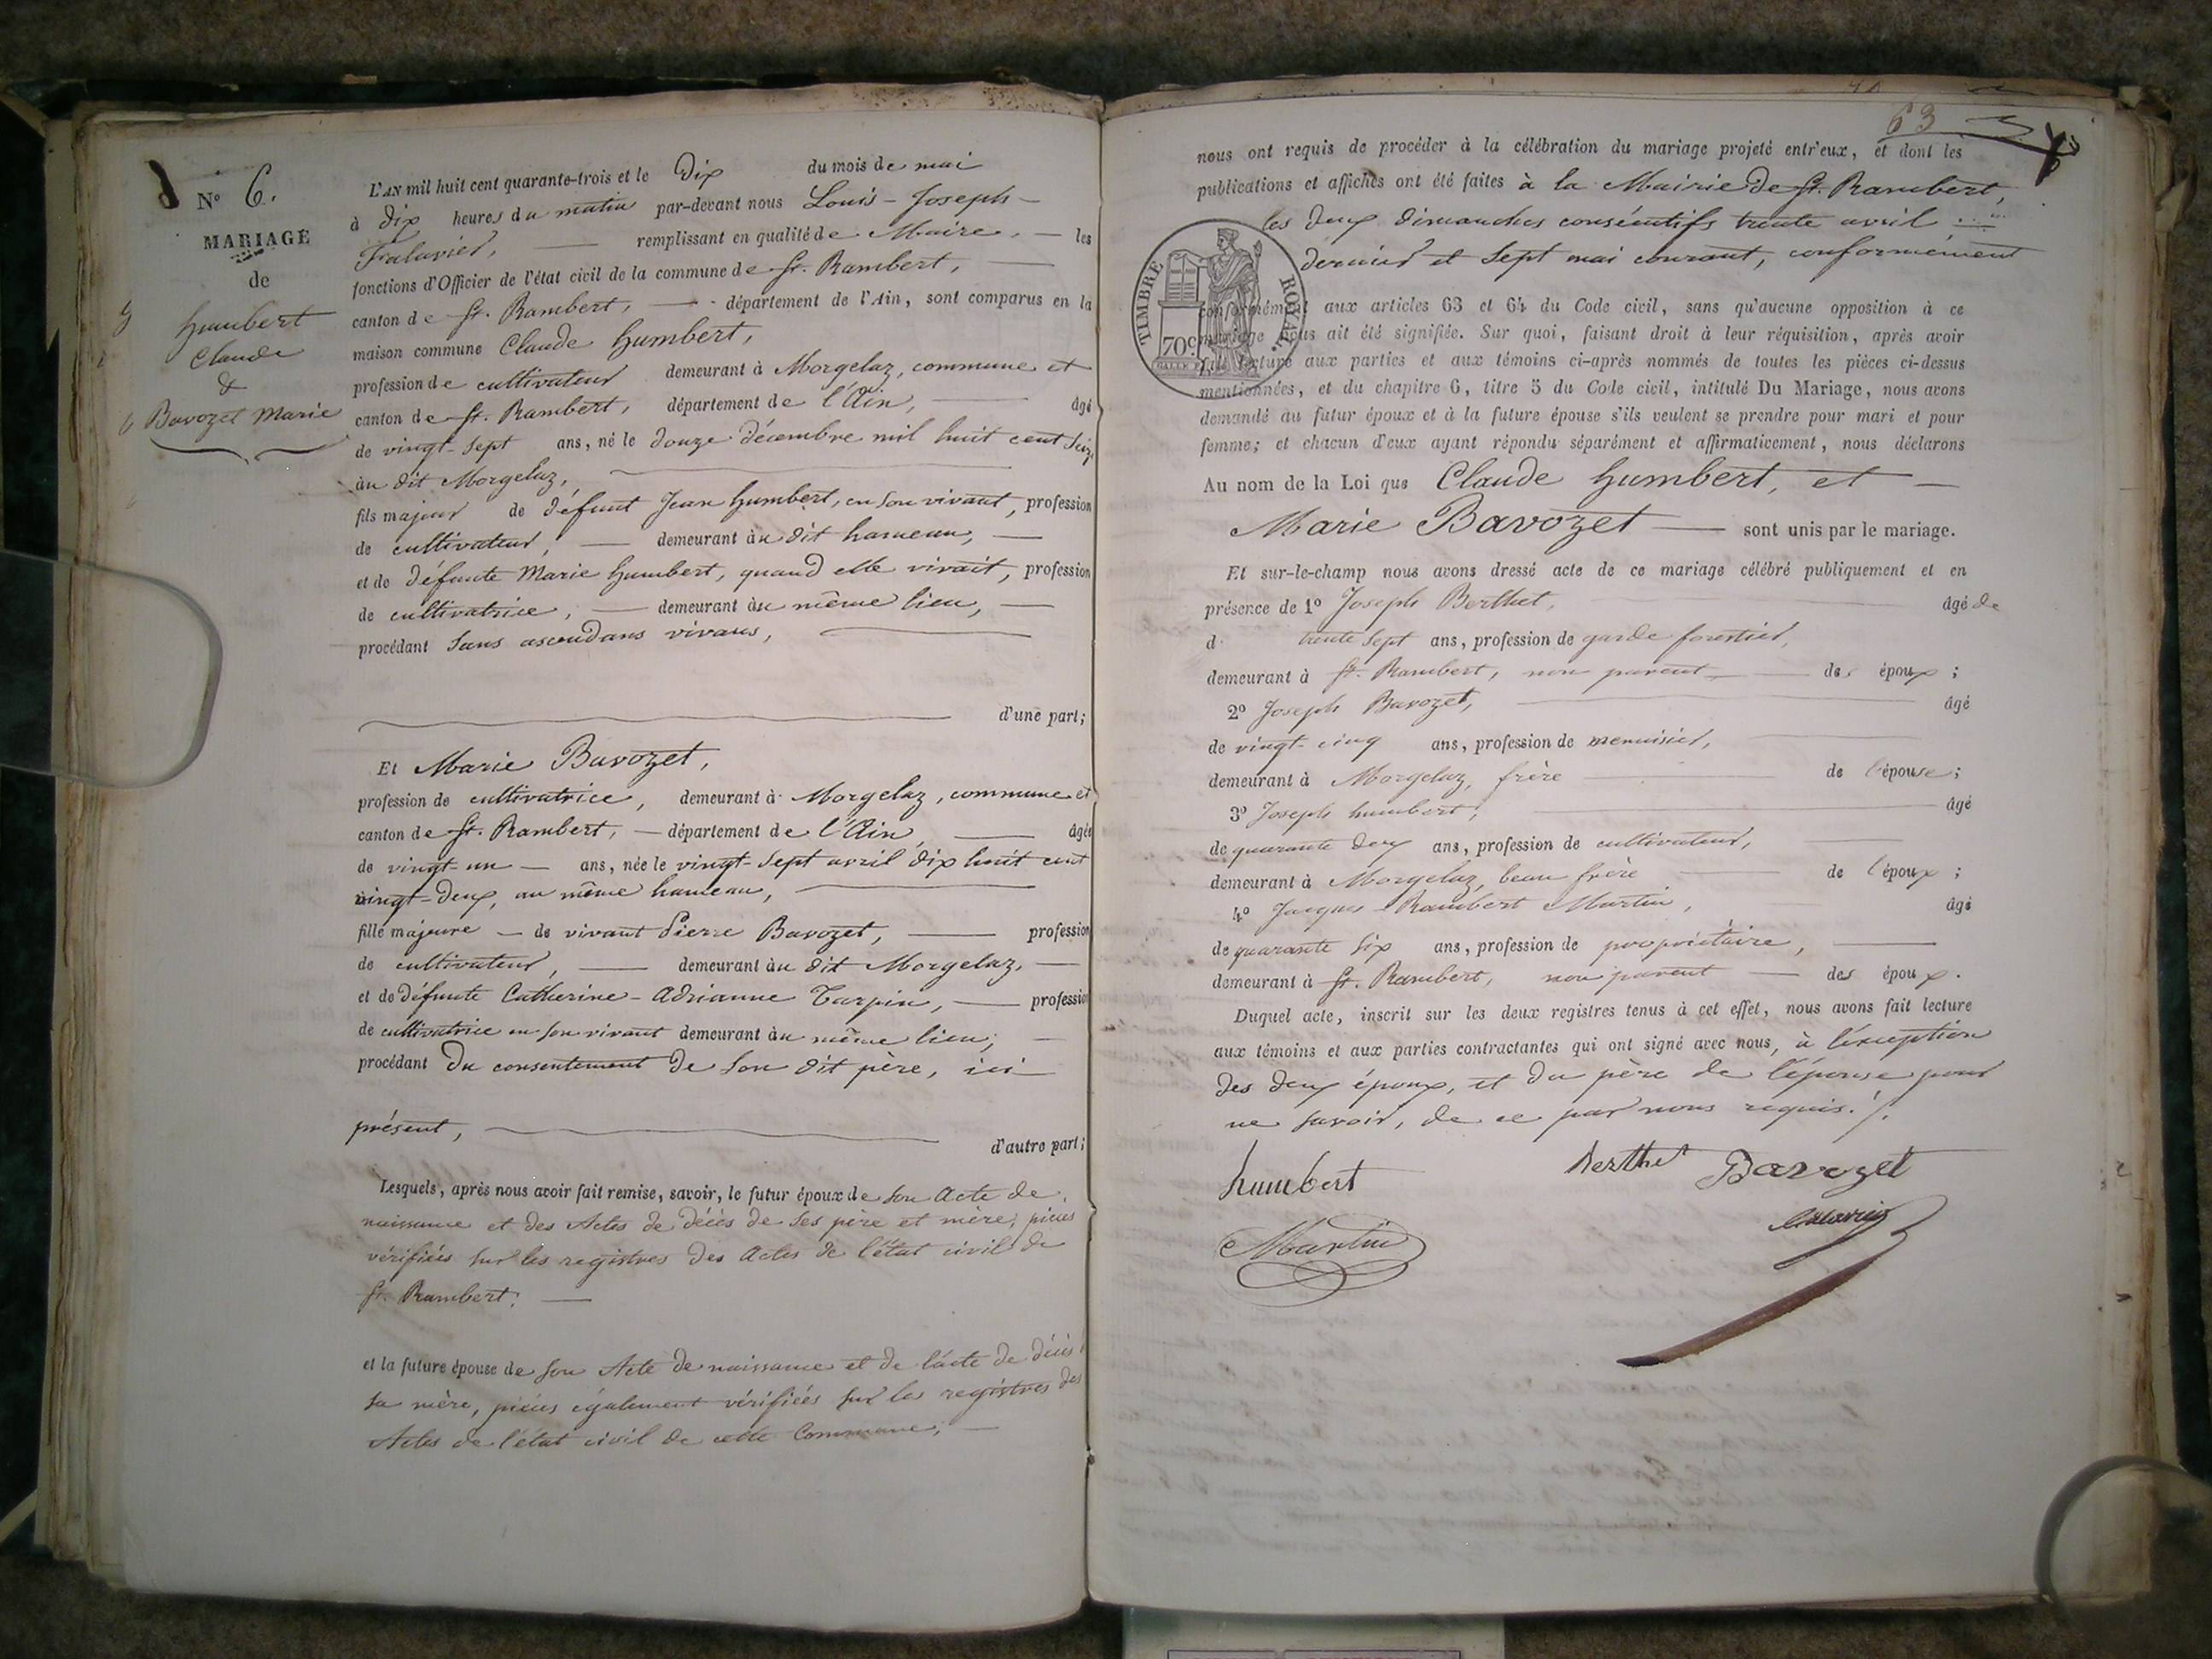 N° 6.
MARIAGE
de
humbert
Claude
&
Bavozet Marie
L'AN mil huit cent quarante-trois et le Dix du mois de mai
à dix heures du matin par-devant nous Louis-Joseph-
Falavier, remplissant en qualité de Maire, les
fonctions d'Officier de l'état civil de la commune de St. Rambert,
canton de St. Rambert, département de l'Ain, sont comparus en la
maison commune Claude humbert,
profession de cultivateur demeurant à Morgelaz, commune et
canton de St. Rambert, département de l'Ain, âgé
de vingt-sept ans, né le douze décembre mil huit cent seize
au dit Morgelaz,
fils majeur de défunt Jean humbert, en son vivant, profession
de cultivateur, demeurant au dit hameau,
et de défunte Marie humbert, quand elle vivait, profession
de cultivatrice, demeurant au même lieu,
procédant sans ascendans vivans,
d'une part;
Et Marie Bavozet,
profession de cultivatrice, demeurant à Morgelaz, commune et
canton de St. Rambert, département de l'Ain, âgée
de vingt-un ans, née le vingt-sept avril dix huit cent
vingt-deux, au même hameau,
fille majeure de vivant Pierre Bavozet, profession
de cultivateur, demeurant au dit Morgelaz,
et de défunte Catherine-Adrianne Tarpin, profession
de cultivatrice en son vivant demeurant au même lieu;
procédant du consentement de son dit père, ici
présent,
d'autre part;
Lesquels, après nous avoir fait remise, savoir, le futur époux de son Acte de
naissance et des Actes de décès de ses père et mère, pièces
vérifiées sur les registres des Actes de l'état civil de
St. Rambert;
et la future épouse de son Acte de naissance et de l'acte de décès
sa mère, pièces également vérifiées sur les registres des
Actes de l'état civil de cette Commune;
63
nous ont requis de procéder à la célébration du mariage projeté entr'eux, et dont les
publications et affiches ont été faites à la Mairie de St. Rambert,
les deux dimanches consécutifs trente avril
dernier et sept mai courant, conformément
TIMBRE ROYAL
70c.
conformément aux articles 63 et 64 du Code civil, sans qu'aucune opposition à ce
mariage nous ait été signifiée. Sur quoi, faisant droit à leur réquisition, après avoir
lecture aux parties et aux témoins ci-après nommés de toutes les pièces ci-dessus
mentionnées, et du chapitre 6, titre 5 du Code civil, intitulé Du Mariage, nous avons
demandé au futur époux et à la future épouse s'ils veulent se prendre pour mari et pour
femme; et chacun d'eux ayant répondu séparément et affirmativement, nous déclarons
Au nom de la Loi que Claude humbert, et
Marie Bavozet sont unis par le mariage.
Et sur-le-champ nous avons dressé acte de ce mariage célébré publiquement et en
présence de 1° Joseph Berthet, âgé de
d trente sept ans, profession de garde forestier,
demeurant à St. Rambert, non parent des époux;
2° Joseph Bavozet, âgé
de vingt-cinq ans, profession de menuisier,
demeurant à Morgelaz, frère de l'épouse;
3° Joseph humbert, âgé
de quarante deux ans, profession de cultivateur,
demeurant à Morgelaz, beau frère de l'époux;
4° Jacques-Rambert Martin, âgé
de quarante six ans, profession de propriétaire,
demeurant à St. Rambert, non parent des époux.
Duquel acte, inscrit sur les deux registres tenus à cet effet, nous avons fait lecture
aux témoins et aux parties contractantes qui ont signé avec nous, à l'exception
des deux époux, et du père de l'épouse pour
ne savoir, de ce par nous requis./.
humbert berthet Bavozet
Martin